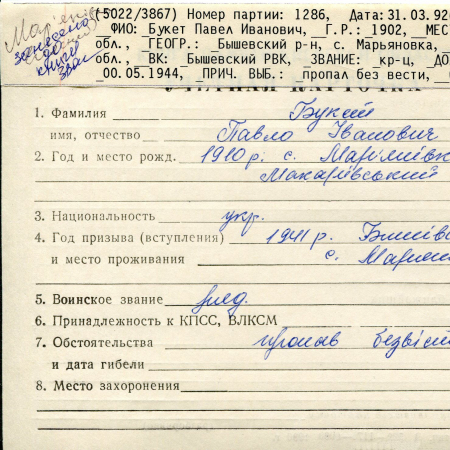 (5022/3867) Номер партии: 1286, Дата:31.03.92
_ФИО: Букет Павел Иванович, _Г.Р.: 1902, _МЕС
обл., _ГЕОГР.: Бышевский р-н, с. Марьяновка, _
обл., _ВК: Бышевский РВК, _ЗВАНИЕ: кр-ц, _ДО
_00.05.1944, _ПРИЧ. ВЫБ.: пропал без вести, _
занесено
книгу
УЧЕТНАЯ КАРТОЧКА
1. Фамилия
имя, отчество Павло Іванович
2. Год и место рожд. 1910 р. с.
Макарівський
3. Национальность укр.
4. Год призыва (вступления) 1941 р.
и место проживания с.
5. Воинское звание ряд.
6. Принадлежность к КПСС, ВЛКСМ
7. Обстоятельства пропав безвіст
и дата гибели
8. Место захоронения